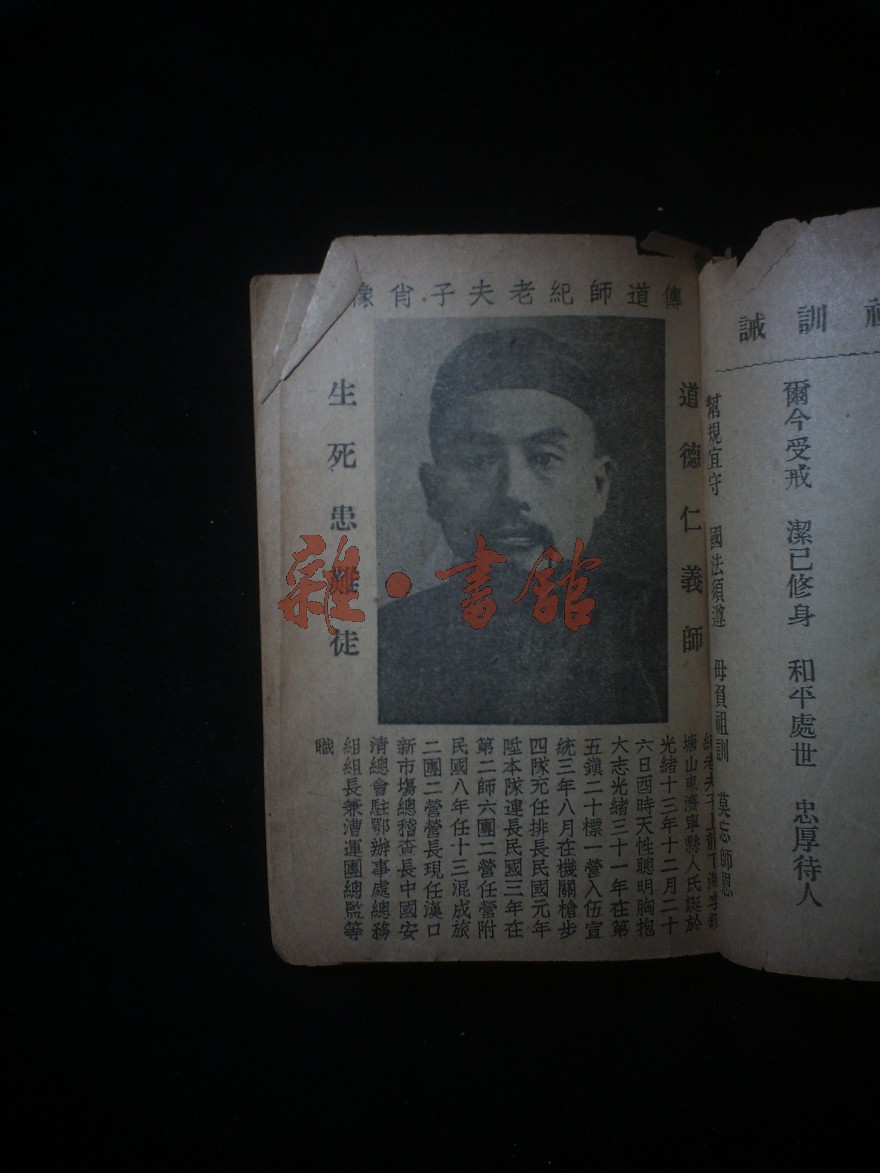 訓誡
爾今受戒 潔己修身 和平處世 忠厚待人
幫規宜守 國法須遵 毋負祖訓 莫忘師恩
傳道師紀老夫子肖像
道德仁義師
生死患難徒
塘山東濟寧縣人氏誕於
光緒十三年十二月二十
六日酉時天性聰明胸抱
大志光緒三十一年在第
五鎮二十標一營入伍宣
統三年八月在機關槍步
四隊充任排長民國元年
陞本隊連長民國三年在
第二師六團二營任營附
民國八年任十三混成旅
二團二營營長現任漢口
新市場總稽查長中國安
清總會駐鄂辦事處總務
組組長兼漕運團總監等
職
雜·書館